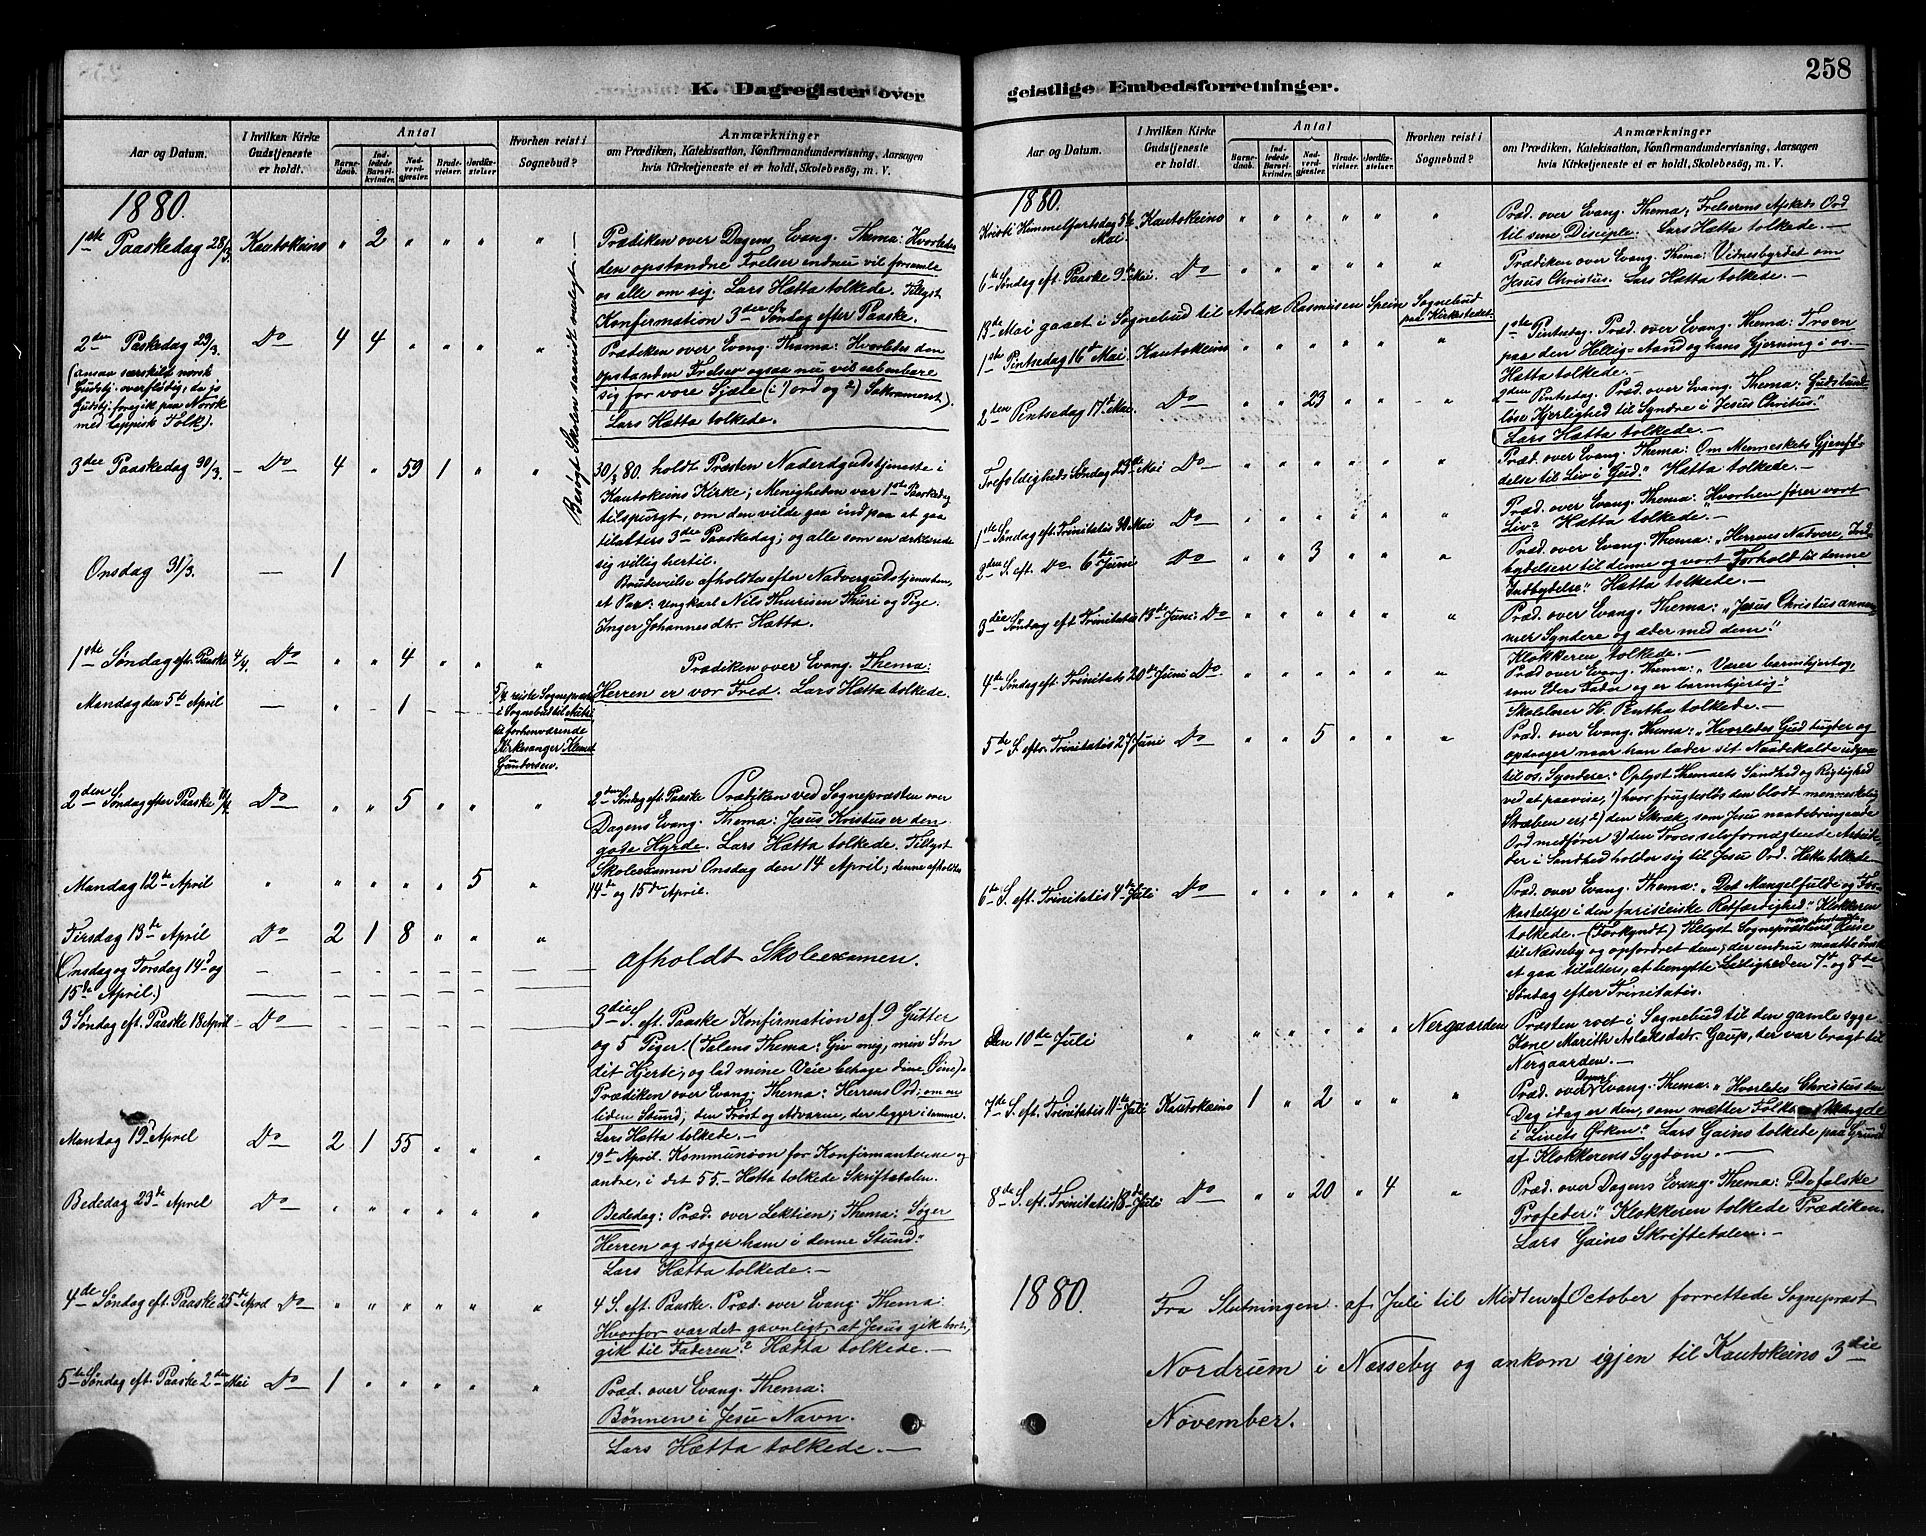 258
K. Dagregister over
geistlige Embedsforretninger.
Aar og Datum.
I hvilken Kirke
Gudstjeneste
er holdt.
Antal
Barne-
daab.
Ind-
ledede
Barsel-
kvinder.
Nad-
verd-
gjester.
Brude-
vielser.
Jordfæ-
stelser
Hvorhen reist i
Sognebud?
Anmærkninger
om Prædiken, Katekisation, Konfirmandundervisning, Aarsagen
hvis Kirketjeneste ei er holdt, Skolebesøg, m. V.
1880.
1ste Paaskedag 28/3. Kautokeino " 2 " " " "
Prædiken over Dagens Evang. Thema: Hvorledes
den opstandne Frelser endnu vil forsamle
os alle om sig. Lars Hætta tolkede. Tillyst
Konfirmation 3die Søndag efter Paaske.
Besøgt Skolen saavidt muligt.
2den Paskedag 29/3. Do 4 4 " " " "
(ansaa særskild norsk
Gudstj. overflødig, da jo
Gudstj. foregik paa Norsk
med lappisk Tolk).
Prædiken over Evang. Thema: Hvorledes den
opstanden Frelser ogsaa nu vil aabenbare
sig for vore Sjæle (i 1) ord og 2) Sakrament).
Lars Hætta tolkede.
3die Paaskedag 30/3. Do 4 " 59 1 " "
30/3 80. holdt Præsten Nadverdgudstjeneste i
Kautokeino Kirke; Menigheden var 1ste Paaskedag
tilspurgt, om den vilde gaa ind paa at gaa
tilalters 3die Paaskedag; og alle som en erklærede
sig villig hertil.
Brudevielse afholdtes efter Nadvergudstjenesten,
et Par: ungkarl Nils Thurisen Thuri og Pige
Inger Johannesdtr. Hætta.
Onsdag 31/3. — 1
1ste Søndag eft. Paaske 4/4. Do " " 4 " " "
Prædiken over Evang. Thema:
Herren er vor Fred. Lars Hætta tolkede.
Mandag den 5te April — " - 1 — —
5/4 reiste Sognepræst
i Sognebud til
til forhenværende
Kirkesanger Klemet
Gundersen.
2den Søndag efter Paaske 11/4. Do " " 5 " " "
2den Søndag eft. Paaske Prædiken ved Sognepræsten over
Dagens Evang. Thema: Jesus Kristus er den
gode Hyrde. Lars Hætta tolkede. Tillyst
Skoleexamen Onsdag den 14 April; denne afholdtes
14de og 15de April.
Mandag 12te April " " " " " 5 "
Tirsdag 13de April Do 2 1 8 " " "
Onsdag og Torsdag 14d og
15de April.)
Afholdt Skoleexamen.
3 Søndag eft. Paaske 18 April - Do
3die S. eft. Paaske Konfirmation af 9 Gutter
og 5 Piger. (Talens Thema: Giv mig, min Søn
dit Hjerte, og lad mine Veie behage dine Øine).
Prædiken over Evang. Thema: Herrens Ord: om en
liden Stund; den Trøst og Advarsel, der ligger i samme.
Lars Hætta tolkede. —
Mandag 19d April Do 2 1 55 " " "
19de April. Kommunion for Konfirmanterne og
andre, i det 55. - Hætta tolkede Skriftetalen.
Bededag 23de April Do " " " " " "
Bededag: Præd. over Lektien; Thema: Søger
Herren og søger ham i denne Stund."
Lars Hætta tolkede. —
4de Søndag eft. Paaske 25de April Do " " " " " "
4 S. eft. Paaske. Præd. over Evang. Thema:
Hvorfor var det gavnligt, at Jesus gik bort,
gik til Faderen? Hætta tolkede. —
5te Søndag eft. Paaske 2den Mai Do 1 " " " " "
Præd. over Evang. Thema:
Bønnen i Jesu Navn.
Lars Hætta tolkede. —
Aar og Datum.
I hvilken Kirke
Gudstjeneste
er holdt.
Antal
Barne-
daab.
Ind-
ledede
Barsel-
kvinder.
Nad-
verd-
gjester.
Brude-
vielser.
Jordfæ-
stelser
Hvorhen reist i
Sognebud?
Anmærkninger
om Prædiken, Katekisation, Konfirmandundervisning, Aarsagen
hvis Kirketjeneste et er holdt, Skolebesøg, m. V.
1880.
Kristi Himmelfartsdag 6te Mai Kautokeino " " " " " "
Præd. over Evang. Thema: Frelserens Afskeds Ord
til sine Disciple. Lars Hætta tolkede. —
6te Søndag eft. Paaske 9de Mai. Do " " " " " "
Prædiken over Evang. Thema: Vidnesbyrdet om
Jesus Christus. Lars Hætta tolkede. —
13de Mai gaaet i Sognebud til Aslak Rasmussen Spein Sognebud
paa Kirkestedet.
1ste Pintsedag 16de Mai. Kautokeino " " " " " "
1ste Pintsedag. Præd. over Evang. Thema: Troen
paa den Hellig-Aand og hans Gjerning i os.
Hætta tolkede. —
2den Pentsedag 17de Mai. Do " " 23 " " "
2den Pintsedag. Præd. over Evang. Thema: Guds bund-
løse Kjerlighed til Syndre i Jesus Christus."
Lars Hætta tolkede. —
Trefoldigheds Søndag 23de Mai Do " " " " " "
Præd. over Evang. Thema: Om Menneskets Gjenfø-
delse til Liv i Gud." Hætta tolkede. —
1ste Søndag eft. Trinitatis 30 Mai Do " " " " " "
Præd. over Evang. Thema: "Hvorhen fører vort
Liv? Hætta tolkede. —
2den S. eft. Do 6te Juni Do " " 3 " " "
Præd. over Evang. Thema: "Herrens Natvere, Ind-
bydelsen til denne og vort Forhold til denne
Indbydelse." Hætta tolkede. —
3die Søndag eft Trinitatis 13de Juni: Do " " " " " "
Præd. over Evang. Thema: "Jesus Christus annam-
mer Syndere og æder med dem."
Klokkeren tolkede. —
4de Søndag eft. Trinitatis 20de Juni Do " " " " " "
Præd over Evang. Thema: "Værer barmhjertig,
som Eders Fader og er barmhjertig."
Skolelærer H. Pentha tolkede. —
5te S. eftr. Trinitatis 27 Juni Do " " 5 " " "
Præd. over Evang. Thema: "Hvorledes Gud tugter og
opdrager naar han lader sit Naadekalde udgaa
til os, Syndere." Oplyst Themaets Sandhed og Rigtighed
ved at paavise, 1) hvor frugtesløs den blodt menneskelige
Stræben er; 2) den Skræk, som Jesu naadebringende
Ord medfører 3) den Troens selvfornægtende Arbeide
der i Sandhed holder sig til Jesu Ord. Hætta tolkede —
6te S. eft. Trinitatis 4de Juli Do " " " " " "
Præd. over Evang. Thema: "Det Mangelfulde og For-
kastelige i den fariseiske Retfærdighed." Klokkeren
tolkede. — (Forkyndt) Tillyst Sognepræstens Reise
til Næsseby og opfordret dem, der endnu maatte ønske
at gaa tilalters, at benytte Leiligheden 7de og 8de
Søndag efter Trinitatis.
Den 10de Juli " " " " " " Nergaarden
Præsten roet i Sognebud til den gamle syge
Kone Marith Aslaksdatr. Gaup, der var bragt til
Nergaarden. —
7de S. eft. Trinitatis 11te Juli Kautokeino 1 " 2 " " "
Præd. over Dagens Evang. Thema: "Hvorledes Christus den
Dag idag er den, som mætter Folkets Mængde
i Livets Ørken." Lars Gaino tolkede paa Grund
af Klokkerens Sygdom. —
8de S. eft. Trinitatis 18de Juli Do " " 20 " 4 "
Præd. over Dagens Evang. Thema: "De falske
Profeter." Klokkeren tolkede Prædiken.
Lars Gaino Skriftetalen. —
1880.
Fra Slutningen af Juli til Midten af October forrettede Sognepræst
Nordrum i Næsseby og ankom igjen til Kautokeino 3die
November.